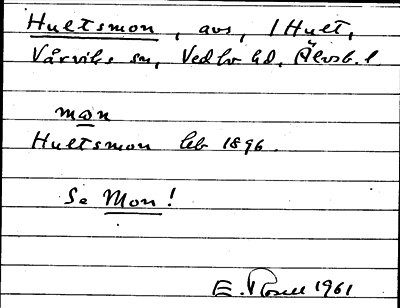 Hultsmon, avs, i Hult,
Vårviks sn, Vedbo hd, Älvsb. l.
mọn
Hultsmon lb 1896.
Se Mon!
E. Rosell 1961